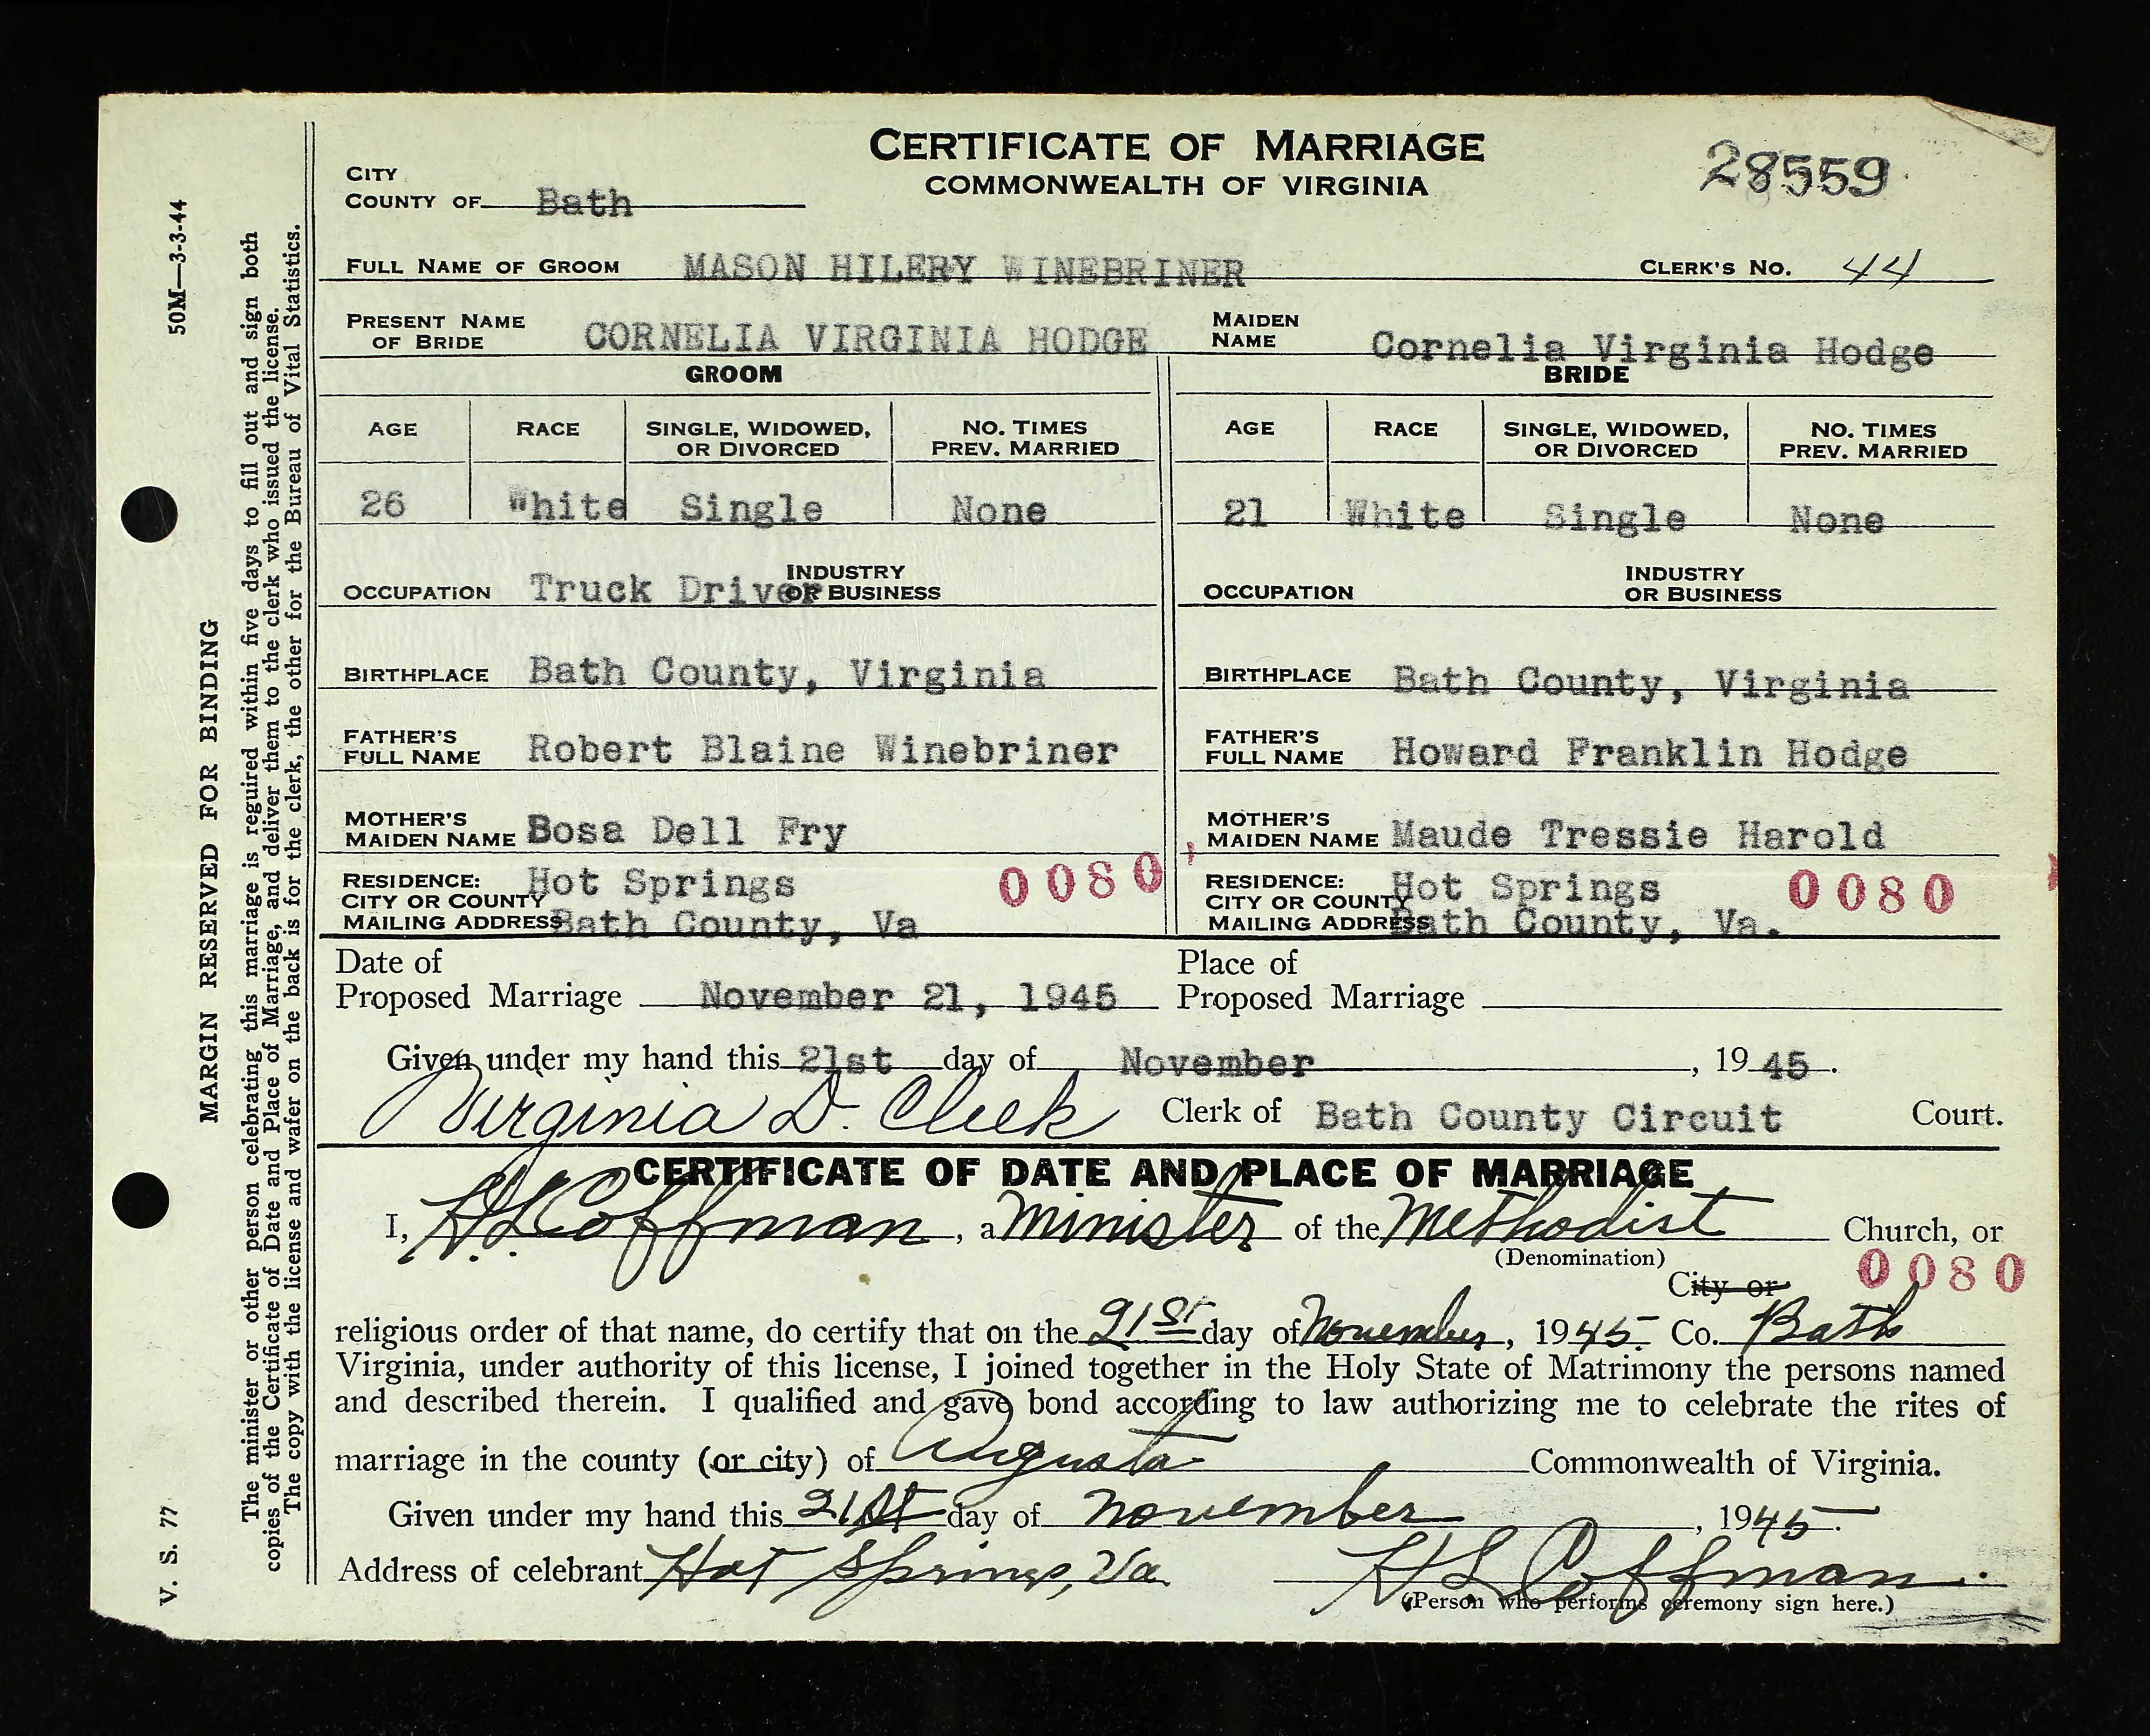 CERTIFICATE OF MARRIAGE
COMMONWEALTH OF VIRGINIA
28559
CITY
COUNTY OF Bath
FULL NAME OF GROOM MASON HILERY WINEBRINER CLERK'S NO. 44
PRESENT NAME OF BRIDE CORNELIA VIRGINIA HODGE MAIDEN NAME Cornelia Virginia Hodge
GROOM BRIDE
AGE RACE SINGLE, WIDOWED, OR DIVORCED NO. TIMES PREV. MARRIED AGE RACE SINGLE, WIDOWED, OR DIVORCED NO. TIMES PREV. MARRIED
26 White Single None 21 White Single None
OCCUPATION Truck Driver INDUSTRY OR BUSINESS OCCUPATION INDUSTRY OR BUSINESS
BIRTHPLACE Bath County, Virginia BIRTHPLACE Bath County, Virginia
FATHER'S FULL NAME Robert Blaine Winebriner FATHER'S FULL NAME Howard Franklin Hodge
MOTHER'S MAIDEN NAME Bosa Dell Fry MOTHER'S MAIDEN NAME Maude Tressie Harold
RESIDENCE: CITY OR COUNTY MAILING ADDRESS Hot Springs Bath County, Va 0080 RESIDENCE: CITY OR COUNTY MAILING ADDRESS Hot Springs Bath County, Va. 0080
Date of Proposed Marriage November 21, 1945 Place of Proposed Marriage
Given under my hand this 21st day of November, 1945.
Virginia D. Cleek Clerk of Bath County Circuit Court.
CERTIFICATE OF DATE AND PLACE OF MARRIAGE
I, H.L. Coffman, a Minister of the Methodist Church, or
(Denomination)
City or 0080
religious order of that name, do certify that on the 21st day of November, 1945 Co. Bath
Virginia, under authority of this license, I joined together in the Holy State of Matrimony the persons named
and described therein. I qualified and gave bond according to law authorizing me to celebrate the rites of
marriage in the county (or city) of Augusta Commonwealth of Virginia.
Given under my hand this 21st day of November, 1945.
Address of celebrant Hot Springs, Va. H L Coffman
(Person who performs ceremony sign here.)
50M—3-3-44
MARGIN RESERVED FOR BINDING
The minister or other person celebrating this marriage is reguired within five days to fill out and sign both
copies of the Certificate of Date and Place of Marriage, and deliver them to the clerk who issued the license.
The copy with the license and wafer on the back is for the clerk, the other for the Bureau of Vital Statistics.
V. S. 77